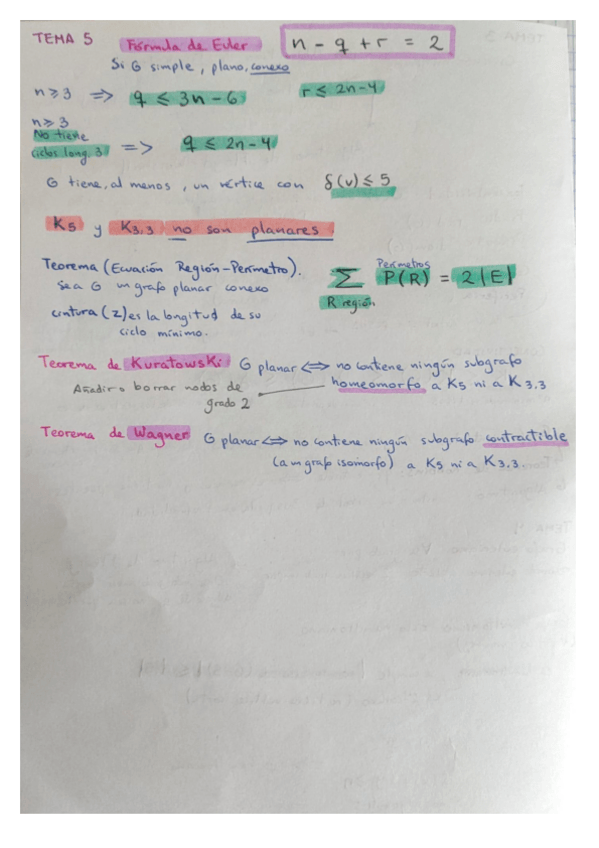 TEMA 5 Fórmula de Euler n - q + r = 2
Si G simple, plano, conexo
n ≥ 3 => q ≤ 3n - 6 r ≤ 2n - 4
n ≥ 3
No tiene
ciclos long. 3 => q ≤ 2n - 4
G tiene, al menos, un vértice con δ(v) ≤ 5
K5 y K3,3 no son planares
Teorema (Ecuación Región-Perímetro).
Sea G un grafo planar conexo
cintura (Z) es la longitud de su
ciclo mínimo.
Perímetros
∑ P(R) = 2|E|
R región
Teorema de Kuratowski G planar <=> no contiene ningún subgrafo
homeomorfo a K5 ni a K3,3
Añadir o borrar nodos de
grado 2
Teorema de Wagner G planar <=> no contiene ningún subgrafo contractible
(a un grafo isomorfo) a K5 ni a K3,3.